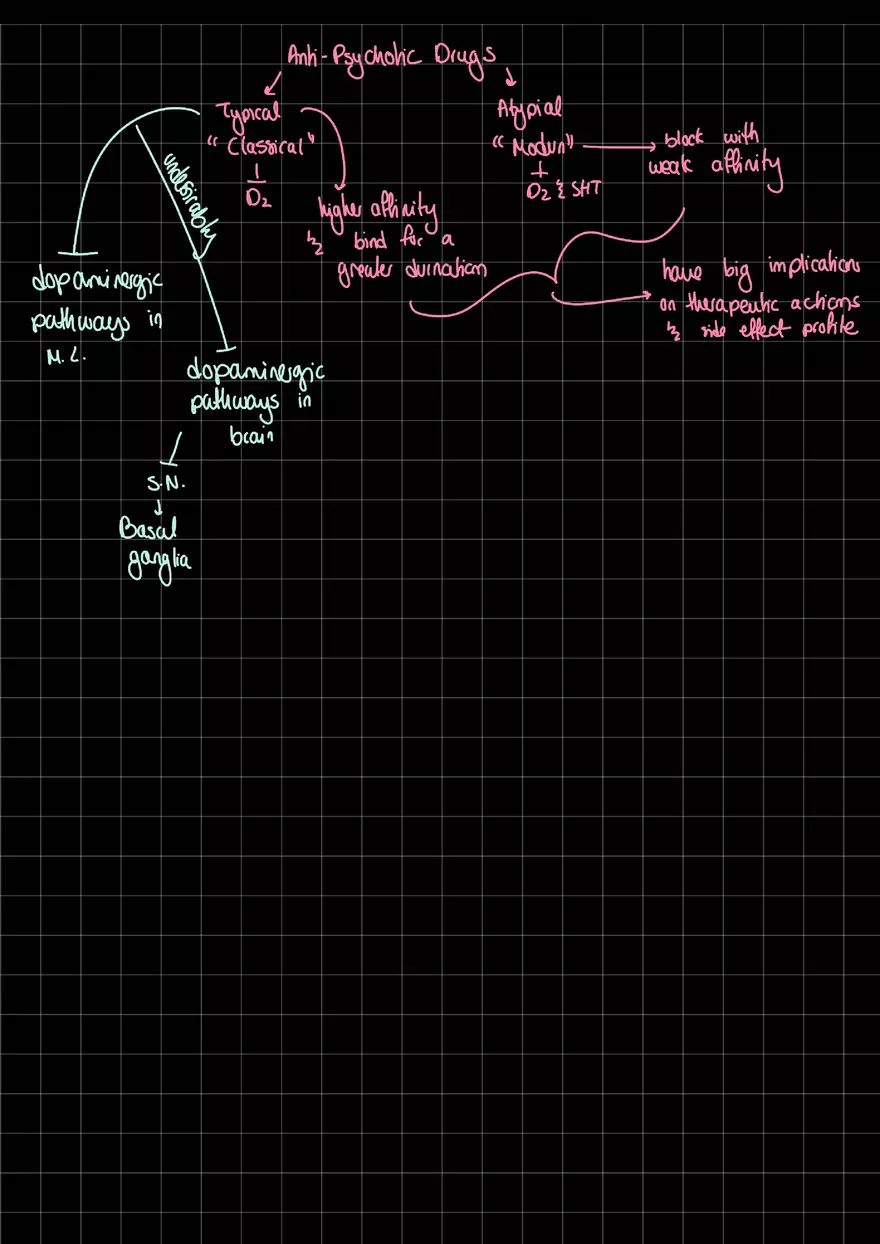 Anti-Psychotic Drugs
Typical
"Classical"
D2
higher affinity
& bind for a
greater durnation
Atypial
"Modern"
D2 & 5HT
block with
weak affinity
have big implications
on therapeutic actions
& side effect profile
undesirably
dopaminergic
pathways in
M.L.
dopaminergic
pathways in
brain
S.N.
Basal
ganglia